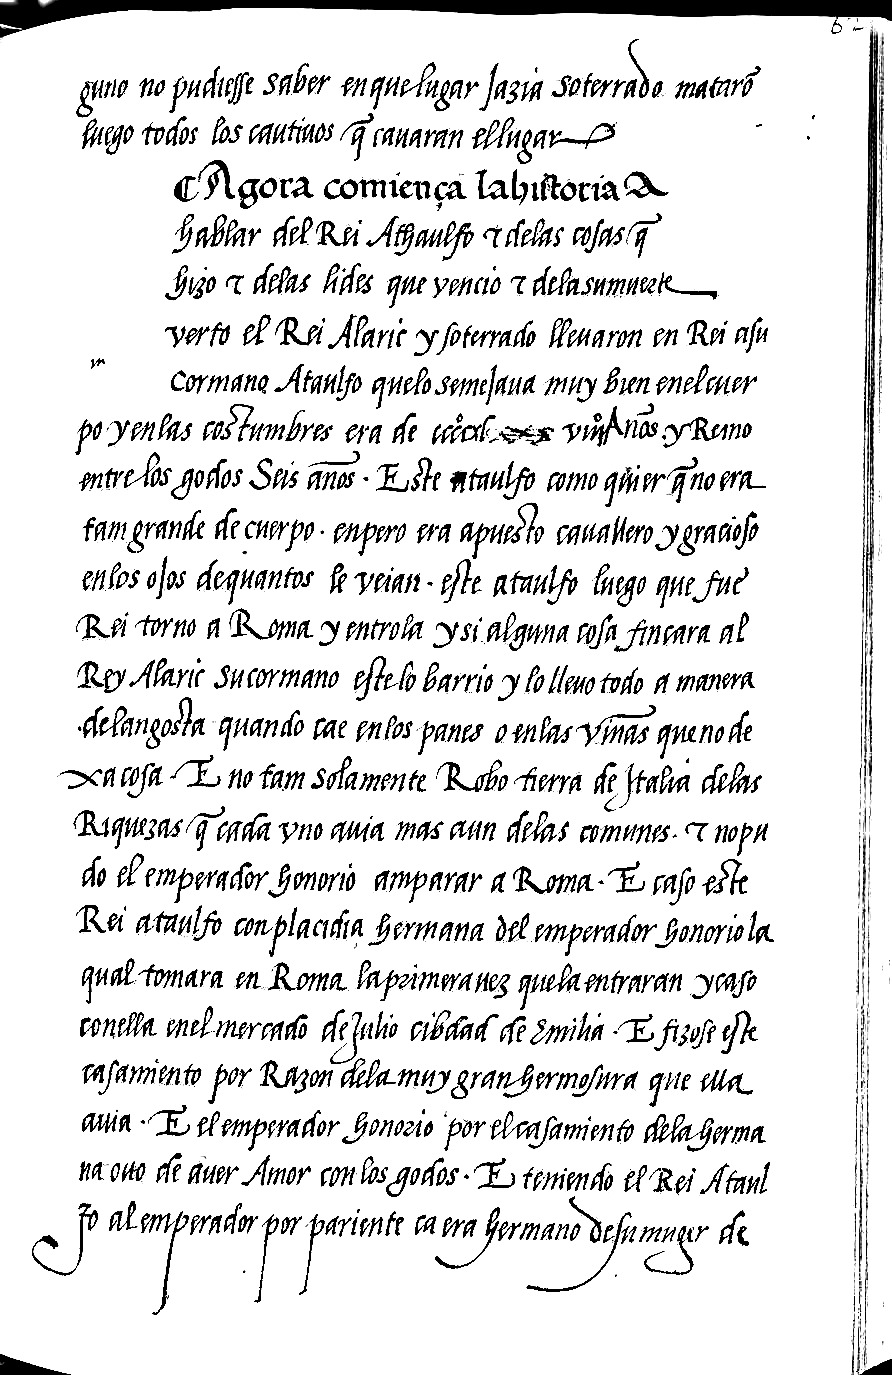 62
guno no pudiesse saber en que lugar jazia soterrado matarõ
luego todos los cautiuos q̃ cauaran el lugar
¶ Agora comiença la historia A
hablar del Rei Athaulfo ⁊ delas cosas q̃
hizo ⁊ delas lides que vencio ⁊ dela su muerte
verto el Rei Alaric y soterrado lleuaron en Rei a su
m
cormano Ataulfo que lo semejaua muy bien en el cuer
po y en las costumbres era de viiij Años. y Reino
entre los godos Seis años. Este ataulfo como quier q̃ no era
tam grande de cuerpo. enpero era apuesto cauallero y gracioso
en los ojos de quantos le veian. este ataulfo luego que fue
Rei torno a Roma y entrola y si alguna cosa fincara al
Rey Alaric su cormano este lo barrio y lo lleuo todo a manera
de langosta quando cae en los panes o en las viñas que no de
xa cosa. E no tam solamente Robo tierra de Italia delas
Riquezas q̃ cada vno auia mas aun delas comunes. ⁊ no pu
do el emperador honorio amparar a Roma. E caso este
Rei ataulfo con placidia hermana del emperador honorio la
qual tomara en Roma la primera uez que la entraran y caso
con ella en el mercado de Julio cibdad de Emilia. E fizose este
casamiento por Razon dela muy gran hermosura que ella
auia. E el emperador honorio por el casamiento dela herma
na ouo de auer Amor con los godos. E teniendo el Rei Ataul
fo al emperador por pariente ca era hermano de su muger de